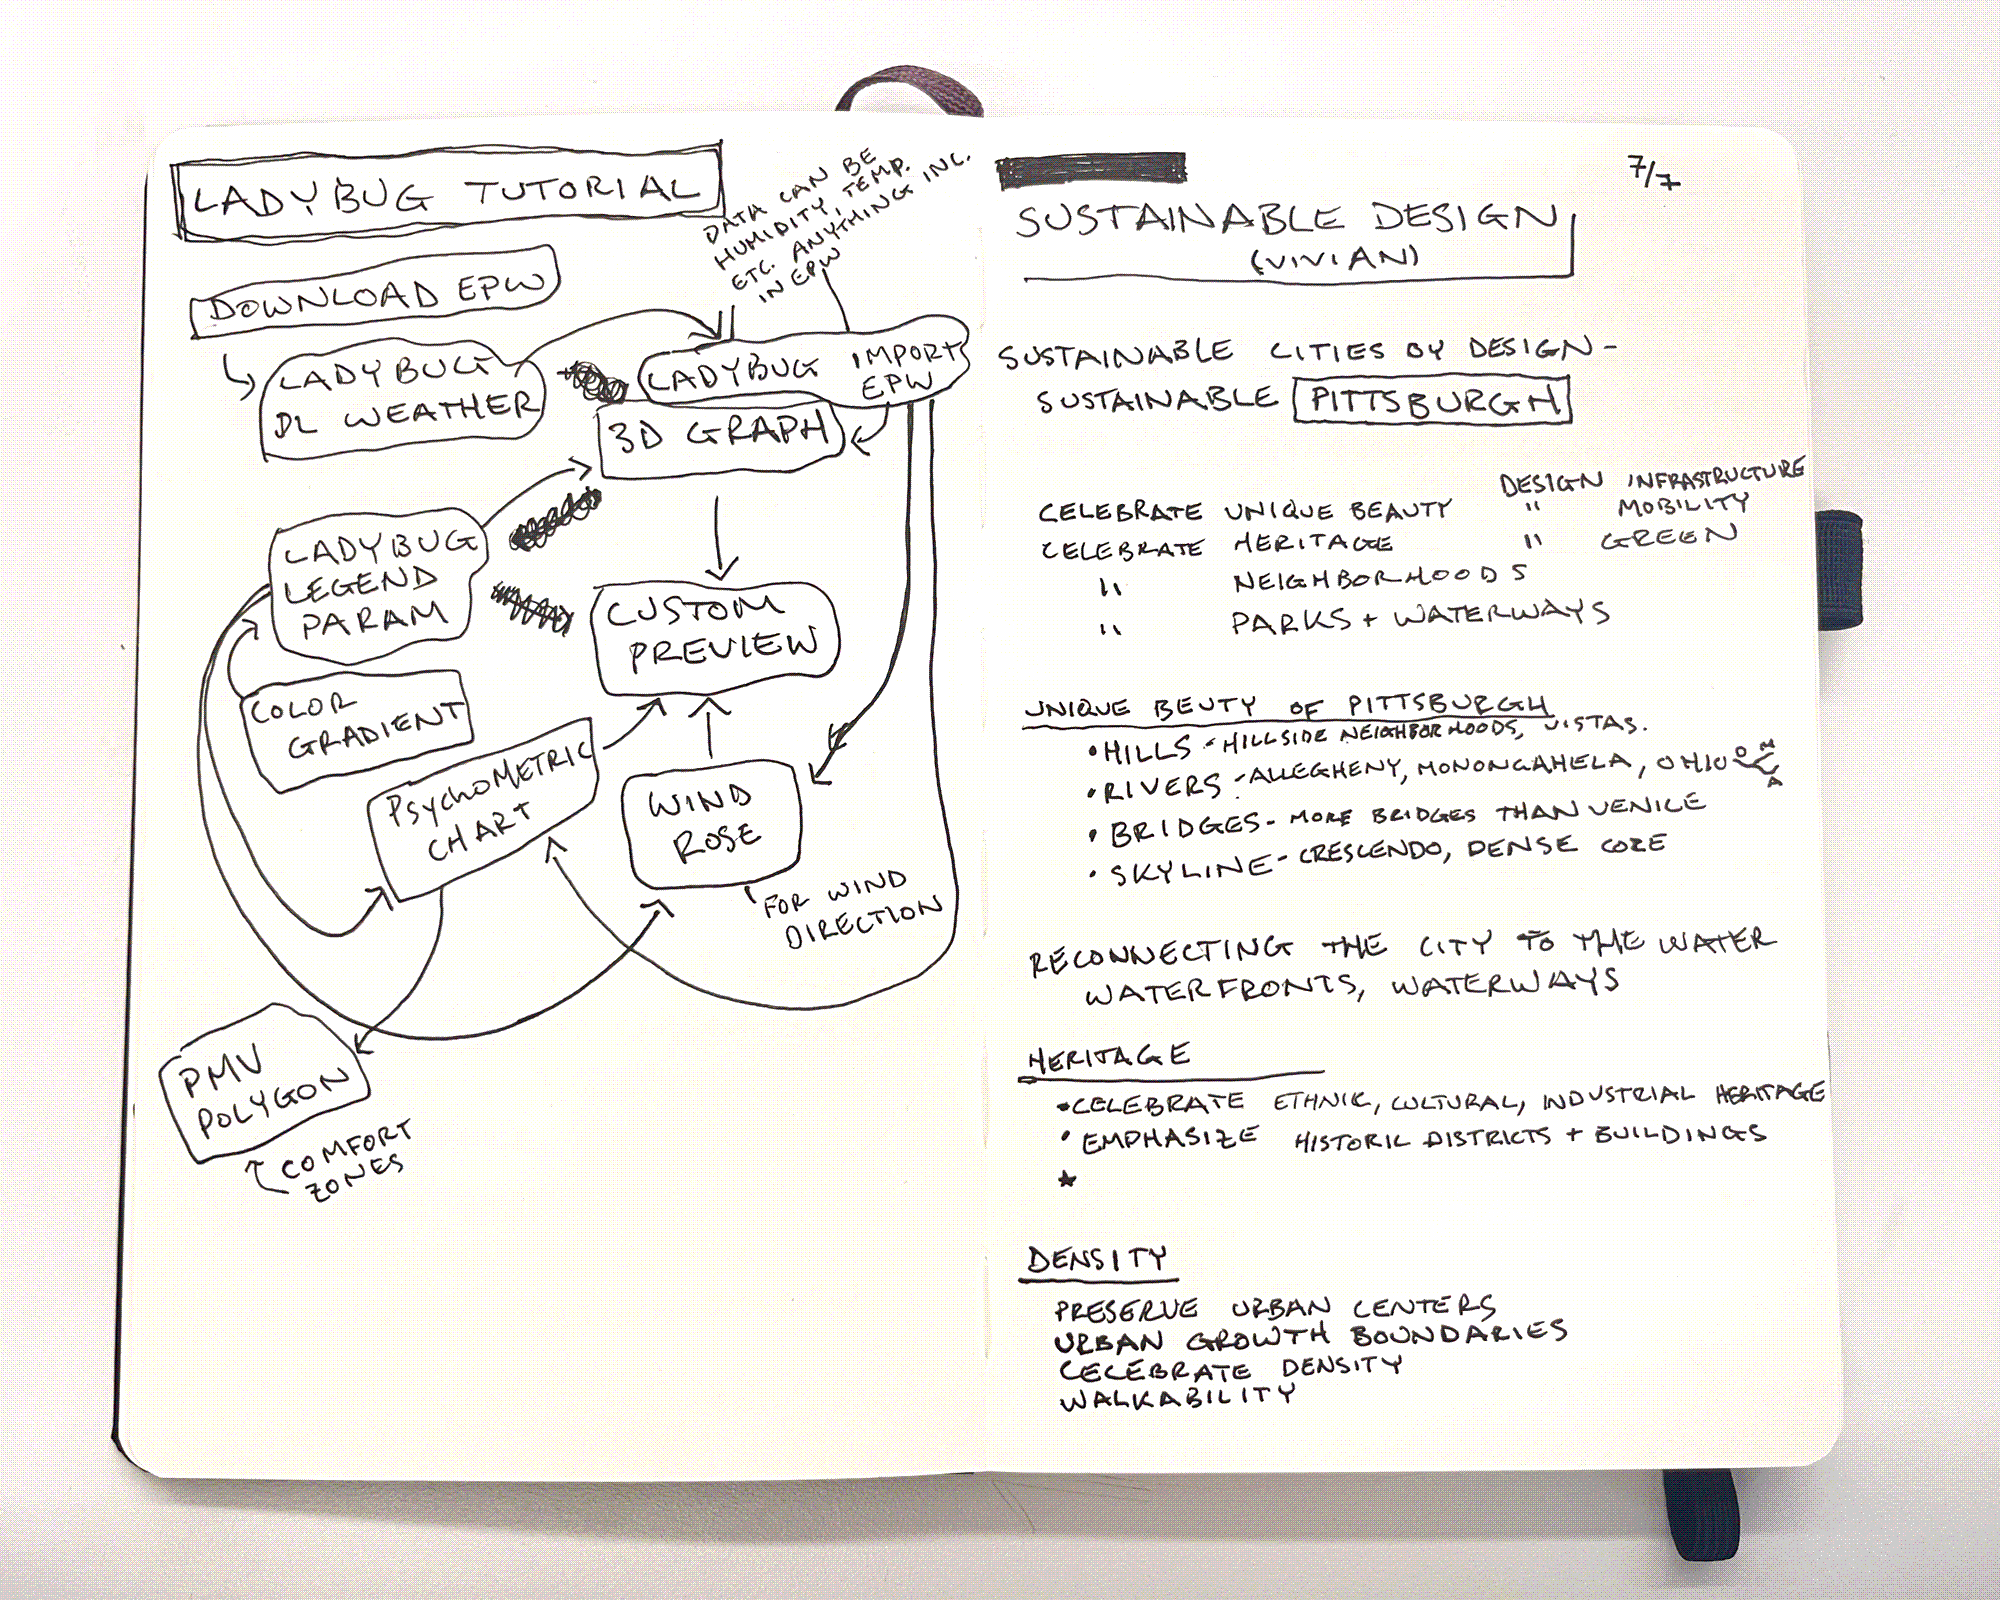 LADYBUG TUTORIAL
DOWNLOAD EPW
DATA CAN BE
HUMIDITY, TEMP.
ETC. ANYTHING INC.
IN EPW
LADYBUG
DL WEATHER
LADYBUG IMPORT
EPW
3D GRAPH
LADYBUG
LEGEND
PARAM
CUSTOM
PREVIEW
COLOR
GRADIENT
PSYCHOMETRIC
CHART
WIND
ROSE
FOR WIND
DIRECTION
PMV
POLYGON
COMFORT
ZONES
7/7
SUSTAINABLE DESIGN
(VIVIAN)
SUSTAINABLE CITIES BY DESIGN -
SUSTAINABLE PITTSBURGH
CELEBRATE UNIQUE BEAUTY
CELEBRATE HERITAGE
" NEIGHBORHOODS
" PARKS + WATERWAYS
DESIGN INFRASTRUCTURE
" MOBILITY
" GREEN
UNIQUE BEUTY OF PITTSBURGH
• HILLS - HILLSIDE NEIGHBORHOODS, VISTAS.
• RIVERS - ALLEGHENY, MONONGAHELA, OHIO O M A
• BRIDGES - MORE BRIDGES THAN VENICE
• SKYLINE - CRESCENDO, DENSE CORE
RECONNECTING THE CITY TO THE WATER
WATERFRONTS, WATERWAYS
HERITAGE
• CELEBRATE ETHNIC, CULTURAL, INDUSTRIAL HERITAGE
• EMPHASIZE HISTORIC DISTRICTS + BUILDINGS
★
DENSITY
PRESERVE URBAN CENTERS
URBAN GROWTH BOUNDARIES
CELEBRATE DENSITY
WALKABILITY